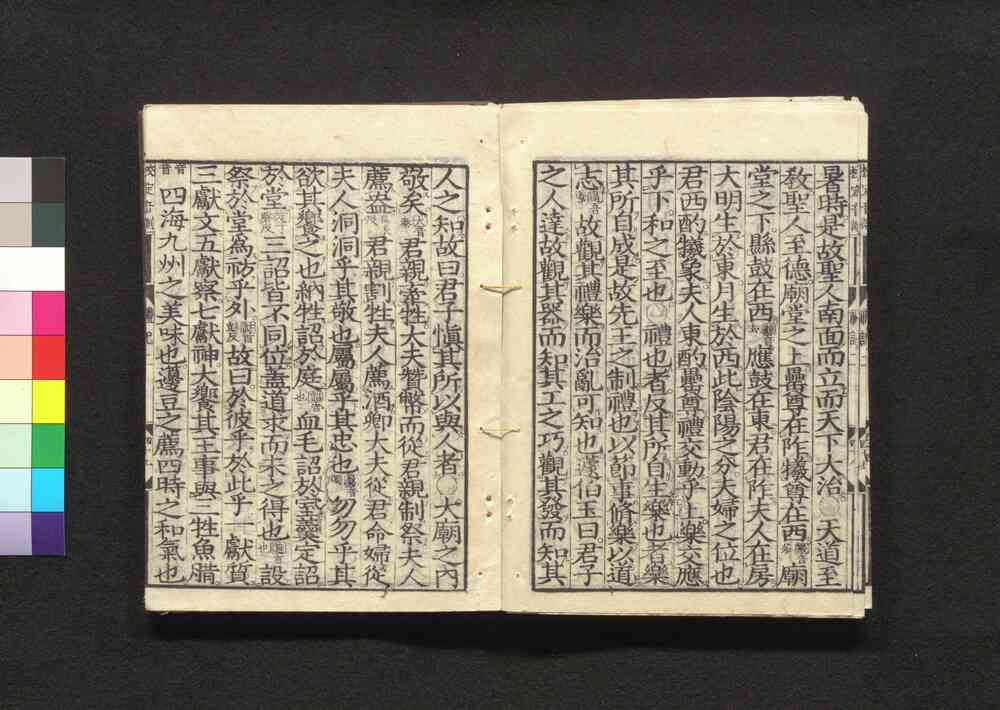 暑時是故聖人南面而立而天下大治〇天道至
敎聖人至德廟堂之上罍尊在阼犧尊在西廟
堂之下縣鼓在西應鼓在東君在阼夫人在房
大明生於東月生於西此陰陽之分夫婦之位也
君西酌犧象夫人東酌罍尊禮交動乎上樂交應
乎下和之至也〇禮也者反其所自生樂也者樂
其所自成是故先王之制禮也以節事脩樂以道
志故觀其禮樂而治亂可知也蘧伯玉曰君子
之人達故觀其器而知其工之巧觀其發而知其
人之知故曰君子愼其所以與人者〇大廟之內
敬矣君親牽牲大夫贊幣而從君親制祭夫人
薦盎君親割牲夫人薦酒卿大夫從君命婦從
夫人洞洞乎其敬也屬屬乎其忠也勿勿乎其
欲其饗之也納牲詔於庭血毛詔於室羹定詔
於堂三詔皆不同位蓋道求而未之得也設
祭於堂爲祊乎外故曰於彼乎於此乎一獻質
三獻文五獻察七獻神大饗其王事與三牲魚腊
四海九州之美味也籩豆之薦四時之和氣也